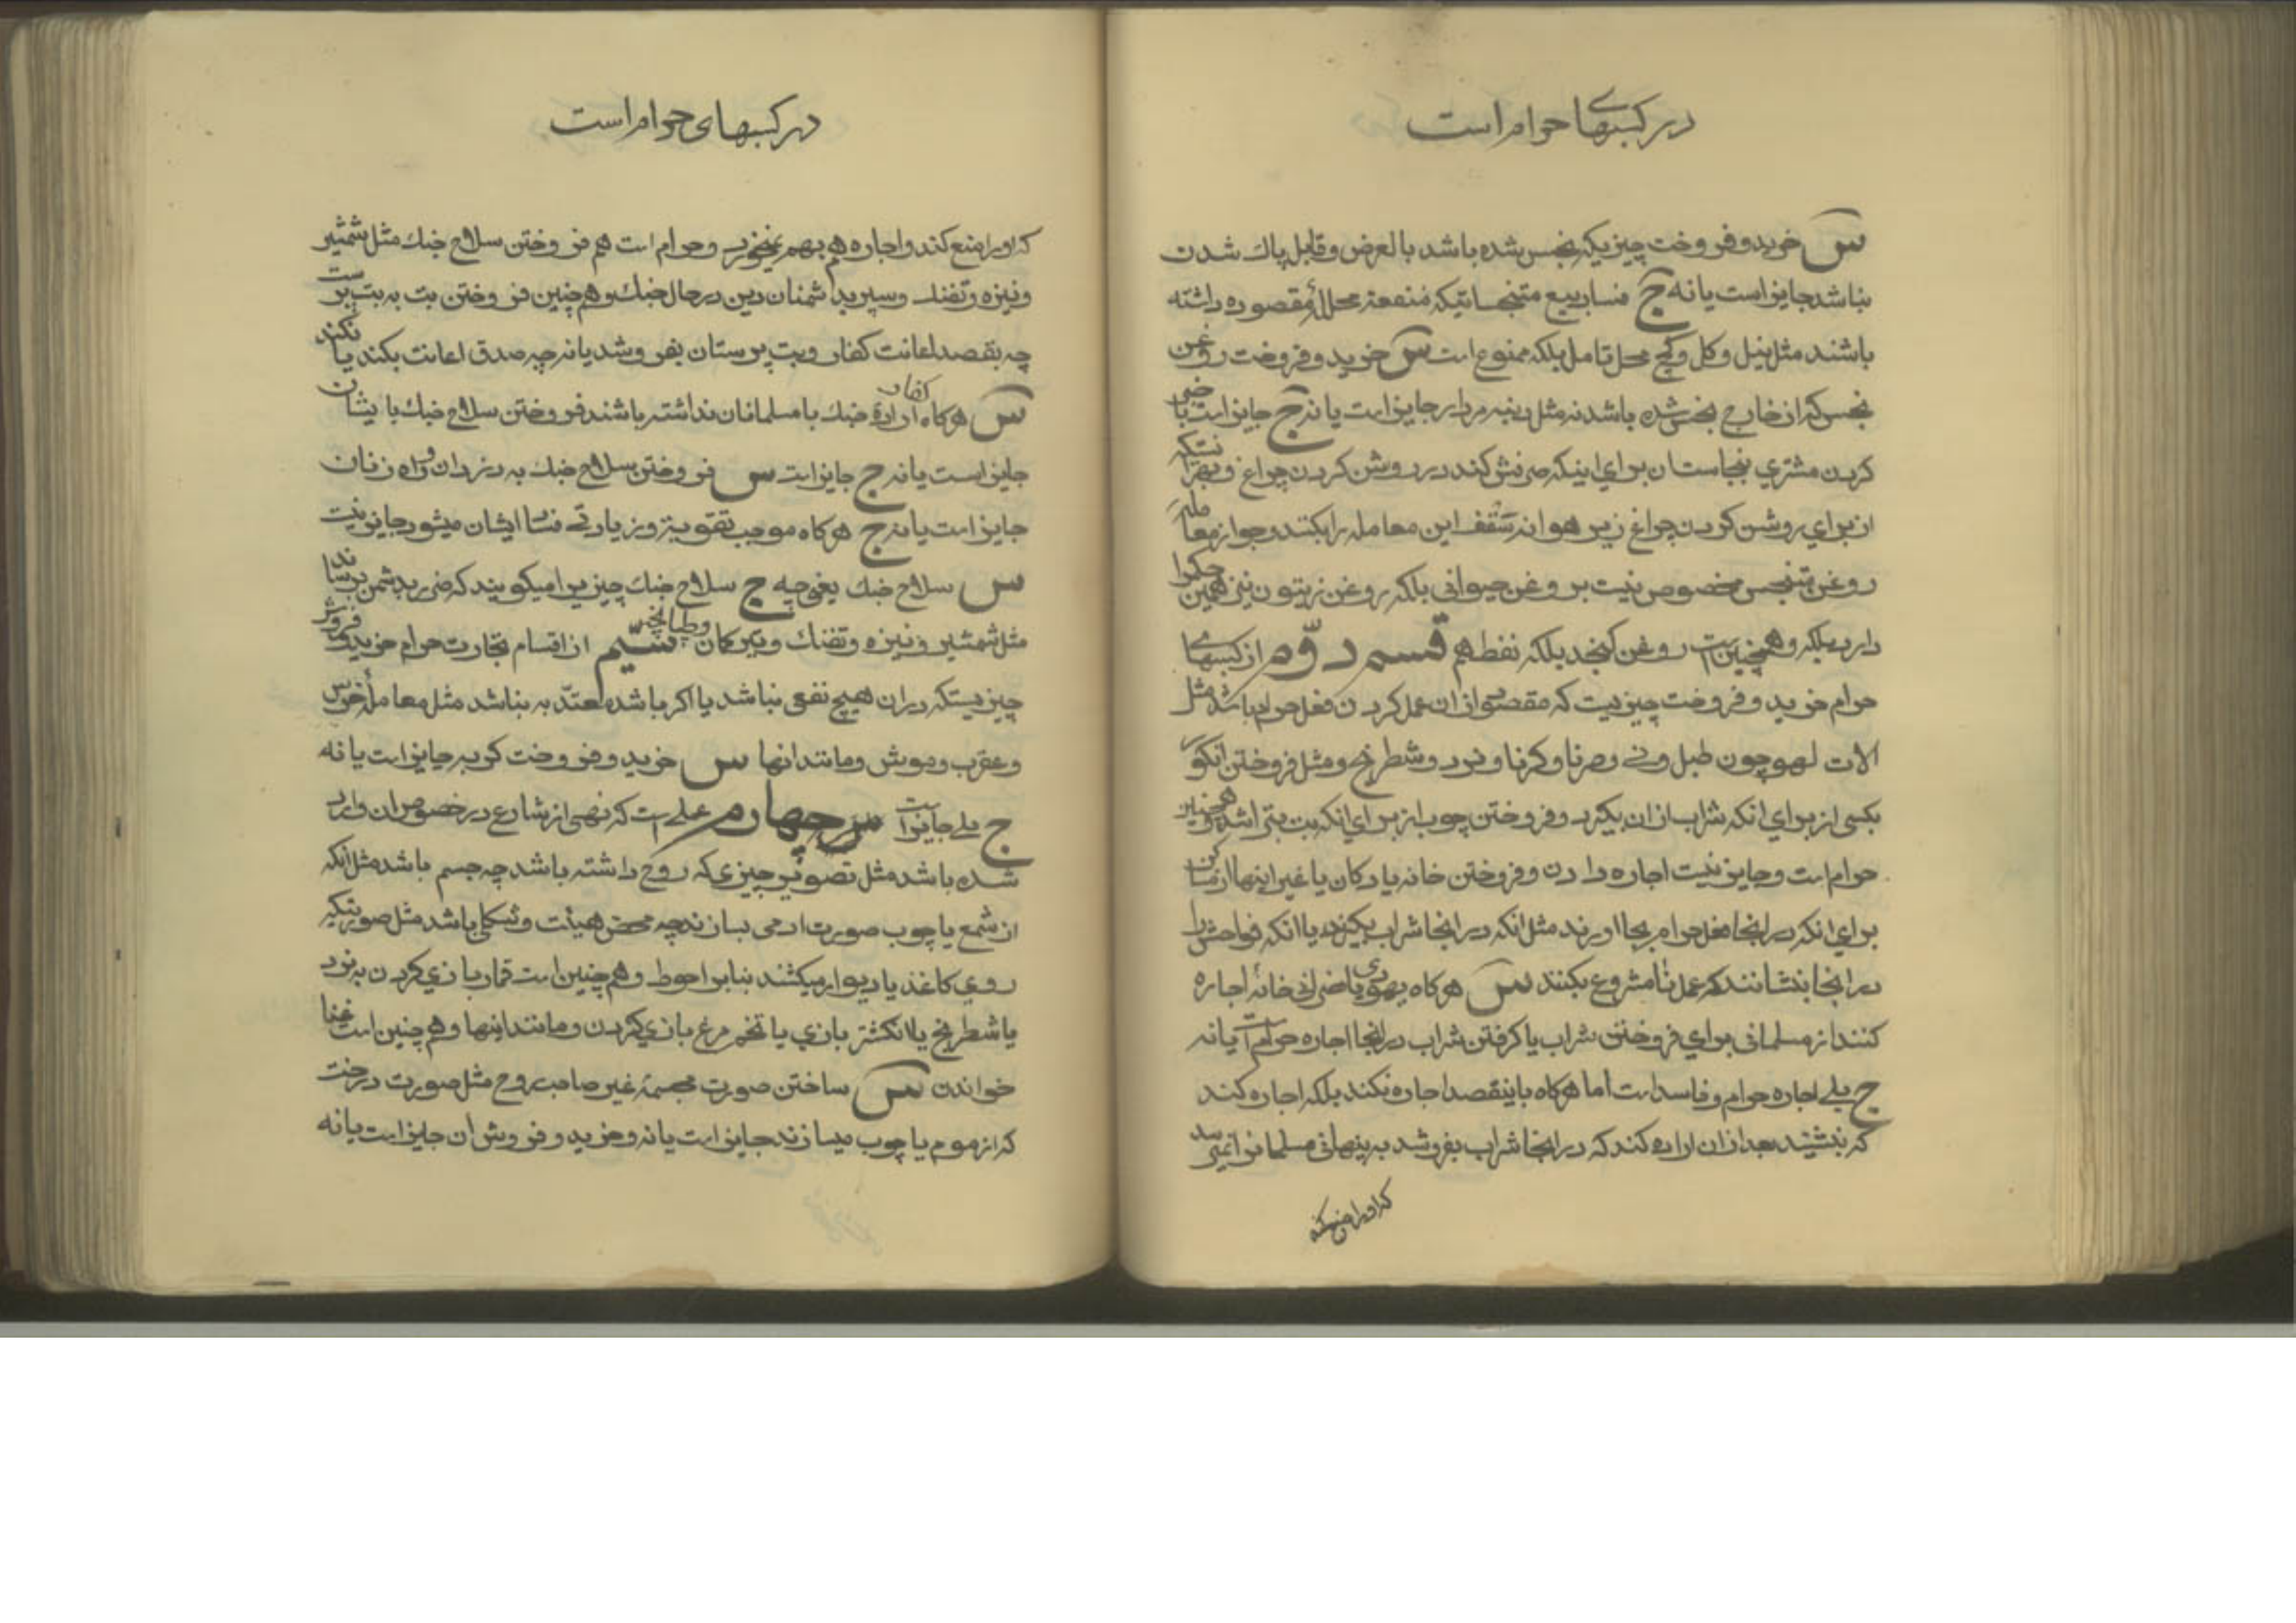 در کسبهای حرام است
س خرید و فروخت چیزیکه نجس شده باشد بالعرض و قابل پاك شدن
نباشد جایز است یا نه ج فساد بیع متنجساتیکه منفعة محللهٔ مقصوده داشته
باشند مثل نیل و کل و کچ محل تامل بلکه ممنوع است س خرید و فروخت روغن
نجس که از خارج نجس شده باشد نه مثل دنبه مردار جایز است یا نه ج جایز است با خبر
کردن مشتری بنجاست ان برای اینکه صرفش کند در روشن کردن چراغ و بهتر انستکه
از برای روشن کردن چراغ زیر هوا نه سقف این معامله را بکنند و جواز معامله
روغن متنجس مخصوص نیست بروغن حیوانی بلکه روغن زیتون نیز همین حکم را
دارد بلکه و همچنین است روغن کنجد بلکه نفط هم قسم دوّم از کسبهای
حرام خرید و فروخت چیزیست که مقصود از ان عمل کردن فعل حرام باشد مثل
الات لهو چون طبل و نی و صرنا و کرنا و نرد و شطرنج و مثل فروختن انگور
بکسی از برای انکه شراب از ان بگیرد و فروختن چوب از برای انکه بت بتراشد و همچنین
حرام است و جایز نیست اجاره دادن و فروختن خانه یا دکان یا غیر اینها از مساکن
برای انکه در انجا فعل حرام بجا اورند مثل انکه در انجا شراب بگیرند یا انکه فواحش را
در انجا بنشانند که عمل نامشروع بکنند س هرکاه یهودی یا نصرانی خانهٔ اجاره
کنند از مسلمانی برای فروختن شراب یا کرفتن شراب در انجا اجاره حرام است یا نه
ج بلی اجاره حرام و فاسد است اما هرکاه باینقصد اجاره نکند بلکه اجاره کند
که بنشیند بعد از ان اراده کند که در انجا شراب بفروشد به پنهانی مسلمانرا نمیرسد
که او را منع کند
در کسبهای حرام است
که او را منع کند و اجاره هم بهم نمیخورد و حرام است هم فروختن سلاح جنك مثل شمشیر
و نیزه و تفنك و سپر بدشمنان دین در حال جنك و هم چنین فروختن بت به بت پرست
چه بقصد اعانت کفار و بت پرستان بفروشد یا نه چه صدق اعانت بکند یا نکند
س هرکاه کفار ارادهٔ جنك با مسلمانان نداشته باشند فروختن سلاح جنك بایشان
جایز است یا نه ج جایز است س فروختن سلاح جنك به دزدان و راه زنان
جایز است یا نه ج هرکاه موجب تقویة و زیادتی فساد ایشان میشود جایز نیست
س سلاح جنك یعنی چه ج سلاح جنك چیزیرا میکویند که ضرر بدشمن برساند
مثل شمشیر و نیزه و تفنك و تیر کمان و طپانچه سیّم از اقسام تجارت حرام خرید و فروش
چیزیستکه در ان هیچ نفعی نباشد یا اکر باشد معتدّ به نباشد مثل معامله خرس
و عقرب و موش و مانند انها س خرید و فروخت کربه جایز است یا نه
ج بلی جایز است چهارم عملی است که نهی از شارع در خصوص ان وارد
شده باشد مثل تصویر چیزی که روح داشته باشد چه جسم باشد مثل انکه
از شمع یا چوب صورت ادمی بسازند چه محض هیئت و شکلی باشد مثل صورتیکه
روی کاغذ یا دیوار میکشند بنابر احوط و هم چنین است قمار بازی کردن به نرد
یا شطرنج یا انکشتر بازی یا تخم مرغ بازی کردن و مانند اینها و هم چنین است غنا
خواندن س ساختن صورت مجسمهٔ غیر صاحب روح مثل صورت درخت
که از موم یا چوب میسازند جایز است یا نه و خرید و فروش ان جایز است یا نه